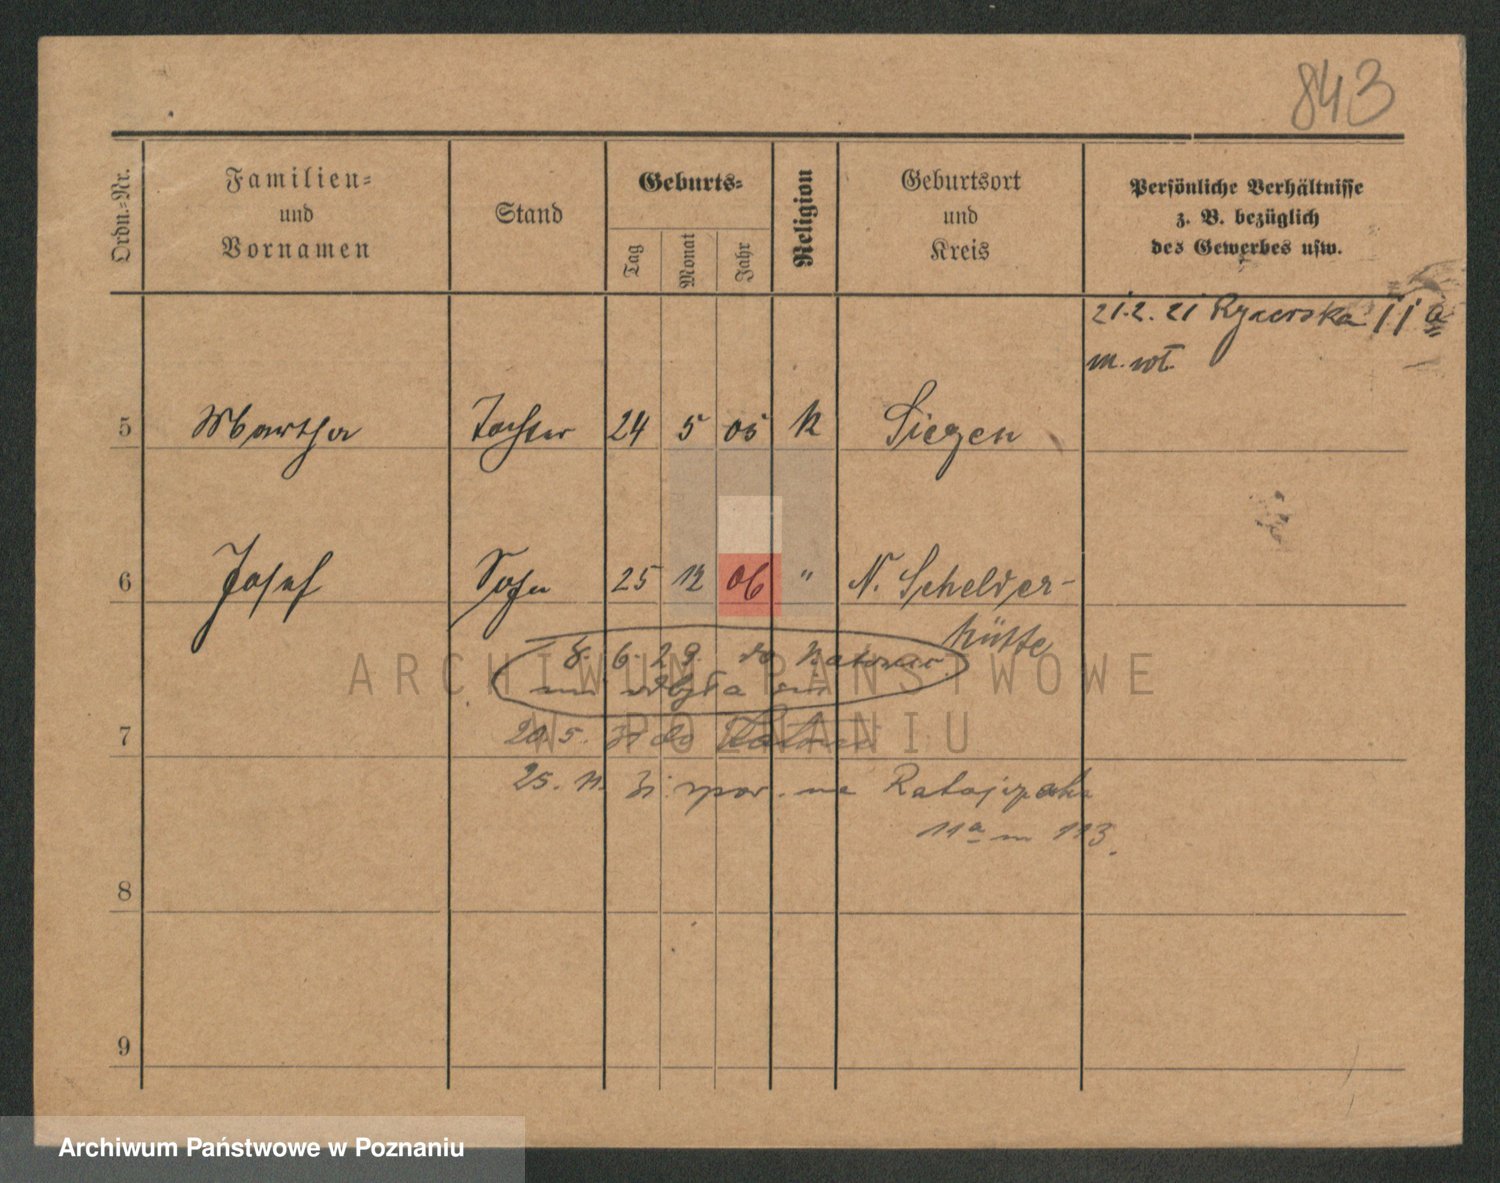 843
Ordn.-Nr.
Familien-
und
Vornamen
Stand
Geburts-
Tag
Monat
Jahr
Religion
Geburtsort
und
Kreis
Persönliche Verhältnisse
z. B. bezüglich
des Gewerbes usw.
21.2.21 11 a
m. wł.
5 Martha Tochter 24 5 05 K Siegen
6 Josef Sohn 25 12 06 " N. Schelder-
hütte
8. 6. 29. do Katowic
odbyła
7 20. 5. do
25. 11. na Ratajczaka
11a m 113.
8
9
ARCHIWUM PAŃSTWOWE
W POZNANIU
Archiwum Państwowe w Poznaniu